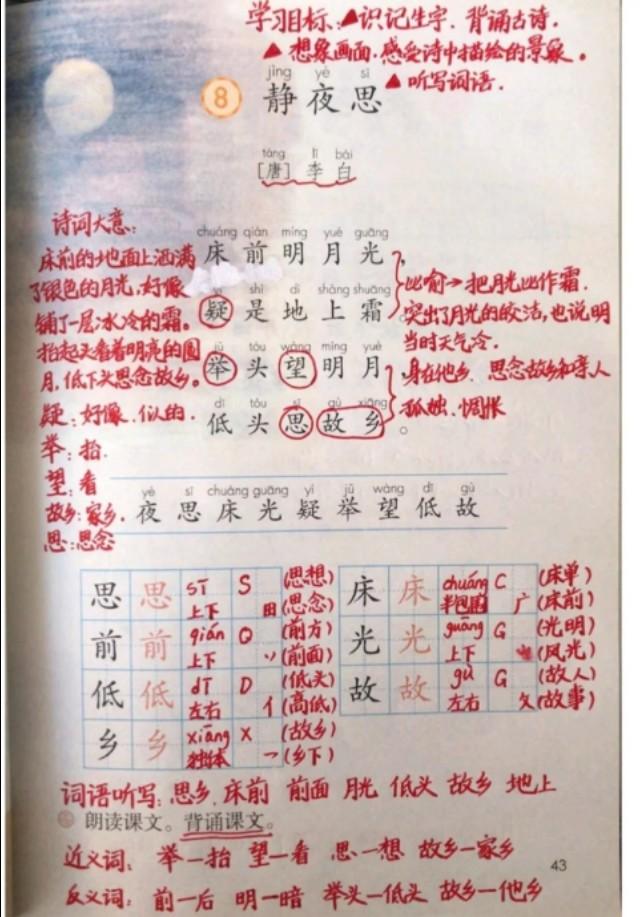 学习目标:▲识记生字.背诵古诗.
▲想象画面.感受诗中描绘的景象。
▲听写词语.
jìng yè sī
8 静夜思
táng lǐ bái
[唐]李白
诗词大意:
床前的地面上洒满
了银色的月光,好像
铺了一层冰冷的霜。
抬起头看着明亮的圆
月,低下头思念故乡。
疑:好像.似的.
举:抬.
望:看
故乡:家乡.
思:思念
chuáng qián míng yuè guāng
床前明月光,
shì dì shàng shuāng
疑是地上霜。
jǔ tóu wàng míng yuè
举头望明月,
dī tóu sī gù xiāng
低头思故乡。
比喻→把月光比作霜.
突出了月光的皎洁,也说明
当时天气冷.
身在他乡、思念故乡和亲人
孤独.惆怅
yè sī chuáng guāng yí jǔ wàng dī gù
夜思床光疑举望低故
思 思 sī 上下 S 田 (思想) (思念)
前 前 qián 上下 Q 丷 (前方) (前面)
低 低 dī 左右 D 亻 (低头) (高低)
乡 乡 xiāng 独体 X 乛 (故乡) (乡下)
床 床 chuáng 半包围 C 广 (床单) (床前)
光 光 guāng 上下 G (光明) (风光)
故 故 gù 左右 G 攵 (故人) (故事)
词语听写:思乡.床前 前面 月光 低头 故乡 地上
朗读课文。背诵课文。
近义词: 举—抬 望—看 思—想 故乡—家乡
43
反义词: 前—后 明—暗 举头—低头 故乡—他乡